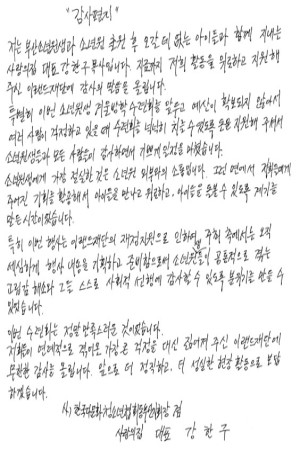 "감사편지"
저는 부산소년원생과 소년원 출원 후 오갈 데 없는 아이들과 함께 지내는
사랑의집 대표 강한구 목사입니다. 지금까지 저희 활동을 위로하고 지원해
주신 이랜드재단에 감사의 말씀을 올립니다.
특별히 이번 소년원생 겨울방학 수련회를 앞두고 예산이 확보되지 않아서
여러 사람이 걱정하고 있을 때 수련회를 넉넉히 치를 수 있도록 돈을 지원해 주셔서
소년원생들과 모든 사람들이 감사하면서 기쁘게 일정을 마쳤습니다.
소년원생에게 가장 절실한 것은 소년원 외부와의 소통입니다. 그런 면에서 저희들에게
주어진 기회를 활용해서 아이들을 만나고 위로하고, 아이들을 도울 수 있도록 계기를
만든 시간이었습니다.
특히 이번 행사는 이랜드재단의 재정지원으로 인하여 주최 측에서는 오직
세심하게 행사 내용을 기획하고 준비함으로써 소년원생들이 공통적으로 겪는
고립감 해소와 그들 스스로 사회적 선행에 감사할 수 있도록 분위기를 만들 수
있었습니다.
이번 수련회는 정말 만족스러운 것이었습니다.
저희들이 연례적으로 겪어온 가장 큰 걱정을 대신 짊어져 주신 이랜드재단에
무한한 감사를 올립니다. 앞으로 더 정진하고, 더 성실한 현장 활동으로 보답
하겠습니다.
사랑의집 대표 강한구